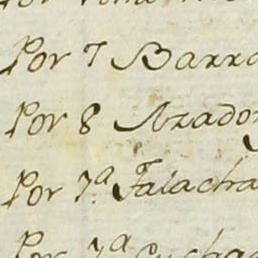 Por 7 Barra
Por 8 Arador
Por 7ª Falacha
Por 7ª